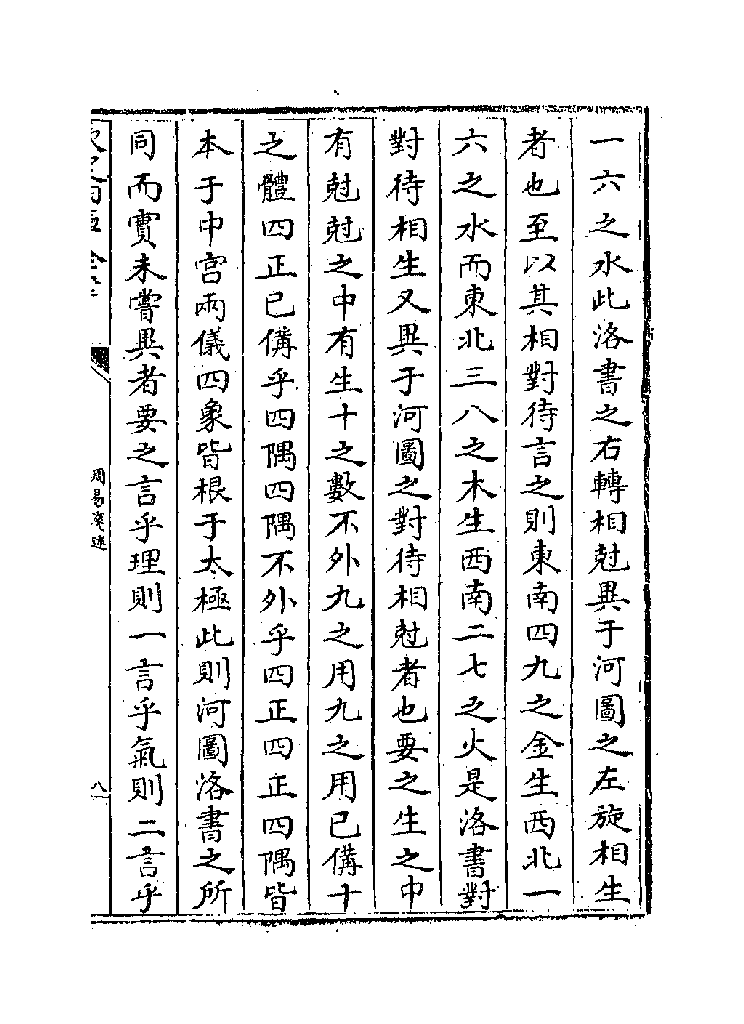 一六之水此洛書之右轉相尅異于河圖之左旋相生
者也至以其相對待言之則東南四九之金生西北一
六之水而東北三八之木生西南二七之火是洛書對
對待相生又異于河圖之對待相尅者也要之生之中
有尅尅之中有生十之數不外九之用九之用已備十
之體四正已備乎四隅四隅不外乎四正四正四隅皆
本于中宫兩儀四象皆根于太極此則河圖洛書之所
同而實未嘗異者要之言乎理則一言乎氣則二言乎
周易
八